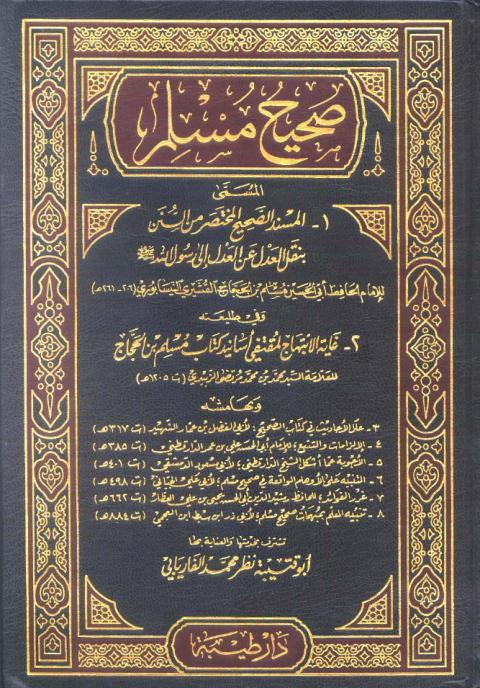 صَحِيحُ مُسْلِم
المُسَمَّى
١- المسند الصحيح المختصر من السُّنَن
بنقل العدل عن العدل إلى رسول الله ﷺ
للإمام الحافظ أبي الحسين مسلم بن الحجاج القشيري النيسابوري (٢٠٦-٢٦١هـ)
وفي طليعته
٢- غاية الابتهاج لمقتفي أسانيد كتاب مسلم بن الحجاج
للعلامة السيد محمد بن محمد مرتضى الزبيدي (ت ١٢٠٥هـ)
وبهامشه
٣- علل الأحاديث في كتاب الصحيح؛ لأبي الفضل بن عمار الشهيد (ت ٣١٧هـ)
٤- الإلزامات والتتبع؛ للإمام أبي الحسن علي بن عمر الدارقطني (ت ٣٨٥هـ)
٥- الأجوبة عما أشكل الشيخ الدارقطني؛ لأبي مسعود الدمشقي (ت ٤٠١هـ)
٦- التنبيه على الأوهام الواقعة في صحيح مسلم؛ لأبي علي الجياني (ت ٤٩٨هـ)
٧- غرر الفوائد؛ للحافظ رشيد الدين أبي الحسين يحيى بن علي العطار (ت ٦٦٢هـ)
٨- تنبيه المعلم بمبهمات صحيح مسلم؛ لأبي ذر ابن سبط ابن العجمي (ت ٨٨٤هـ)
تشرف بخدمتها والعناية بها
أبو قتيبة نظر محمد الفاريابي
دار طيبة